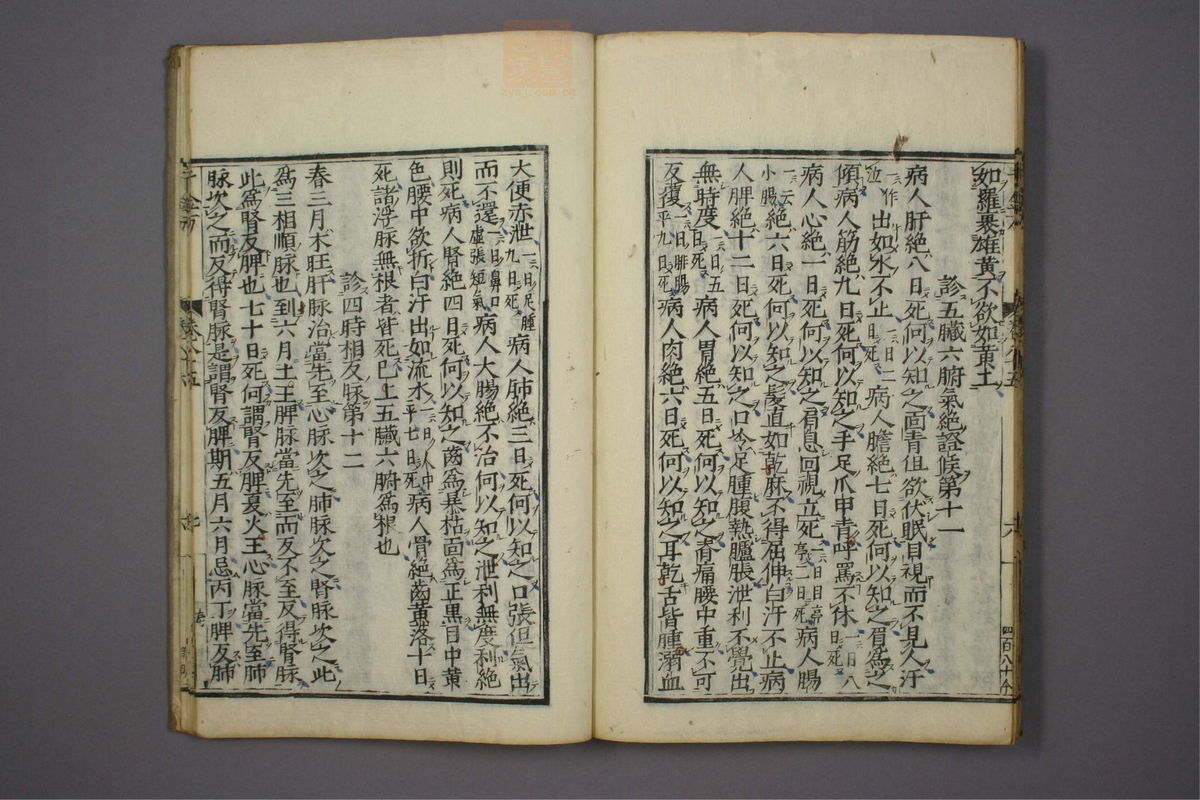 如羅裹雄黃不欲如黃土
診五臟六腑氣絕證候第十一
病人肝絕八日死何以知之面青但欲伏眠目視而不見人汗
一作泣出如水不止一曰二日死病人膽絕七日死何以知之眉爲之
傾病人筋絕九日死何以知之手足爪甲青呼罵不休一曰八日死
病人心絕一日死何以知之肩息回視立死一曰目亭亭二日死病人腸
一云小腸絕六日死何以知之髮直如乾麻不得屈伸白汗不止病
人脾絕十二日死何以知之口冷足腫腹熱臚脹泄利不覺出
無時度一曰五日死病人胃絕五日死何以知之脊痛腰中重不可
反覆一曰腓腸平九日死病人肉絕六日死何以知之耳乾舌皆腫溺血
大便赤泄一曰足腫九日死病人肺絕三日死何以知之口張但氣出
而不還一曰鼻口虛張短氣病人大腸絕不治何以知之泄利無度利絕
則死病人腎絕四日死何以知之齒爲暴枯面爲正黑目中黃
色腰中欲折白汗出如流水一曰人中平七日死病人骨絕齒黃落十日
死諸浮脉無根者皆死已上五臟六腑爲根也
診四時相反脉第十二
春三月木旺肝脉治當先至心脉次之肺脉次之腎脉次之此
爲三相順脉也到六月土王脾脉當先至而反不至反得腎脉
此爲腎反脾也七十日死何謂腎反脾夏火王心脉當先至肺
脉次之而反得腎脉是謂腎反脾期五月六月忌丙丁脾反肺